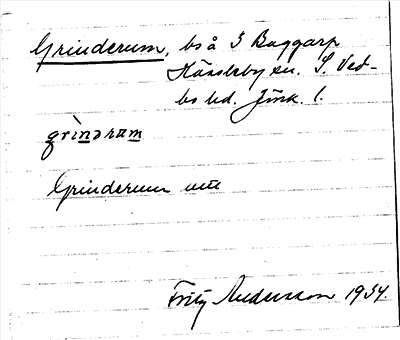 Grinderum, bs å S Baggarp
Hässleby sn. S. Ved-
bo hd. Jönk. l.
grìndrum
Grinderum
Fritz Andersson 1934.